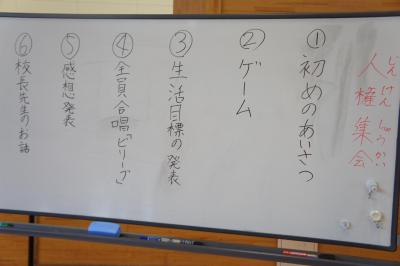 人権集会
じんけんしゅうかい
①初めのあいさつ
②ゲーム
③生活目標の発表
④全員合唱「ビリーブ」
⑤感想発表
⑥校長先生のお話